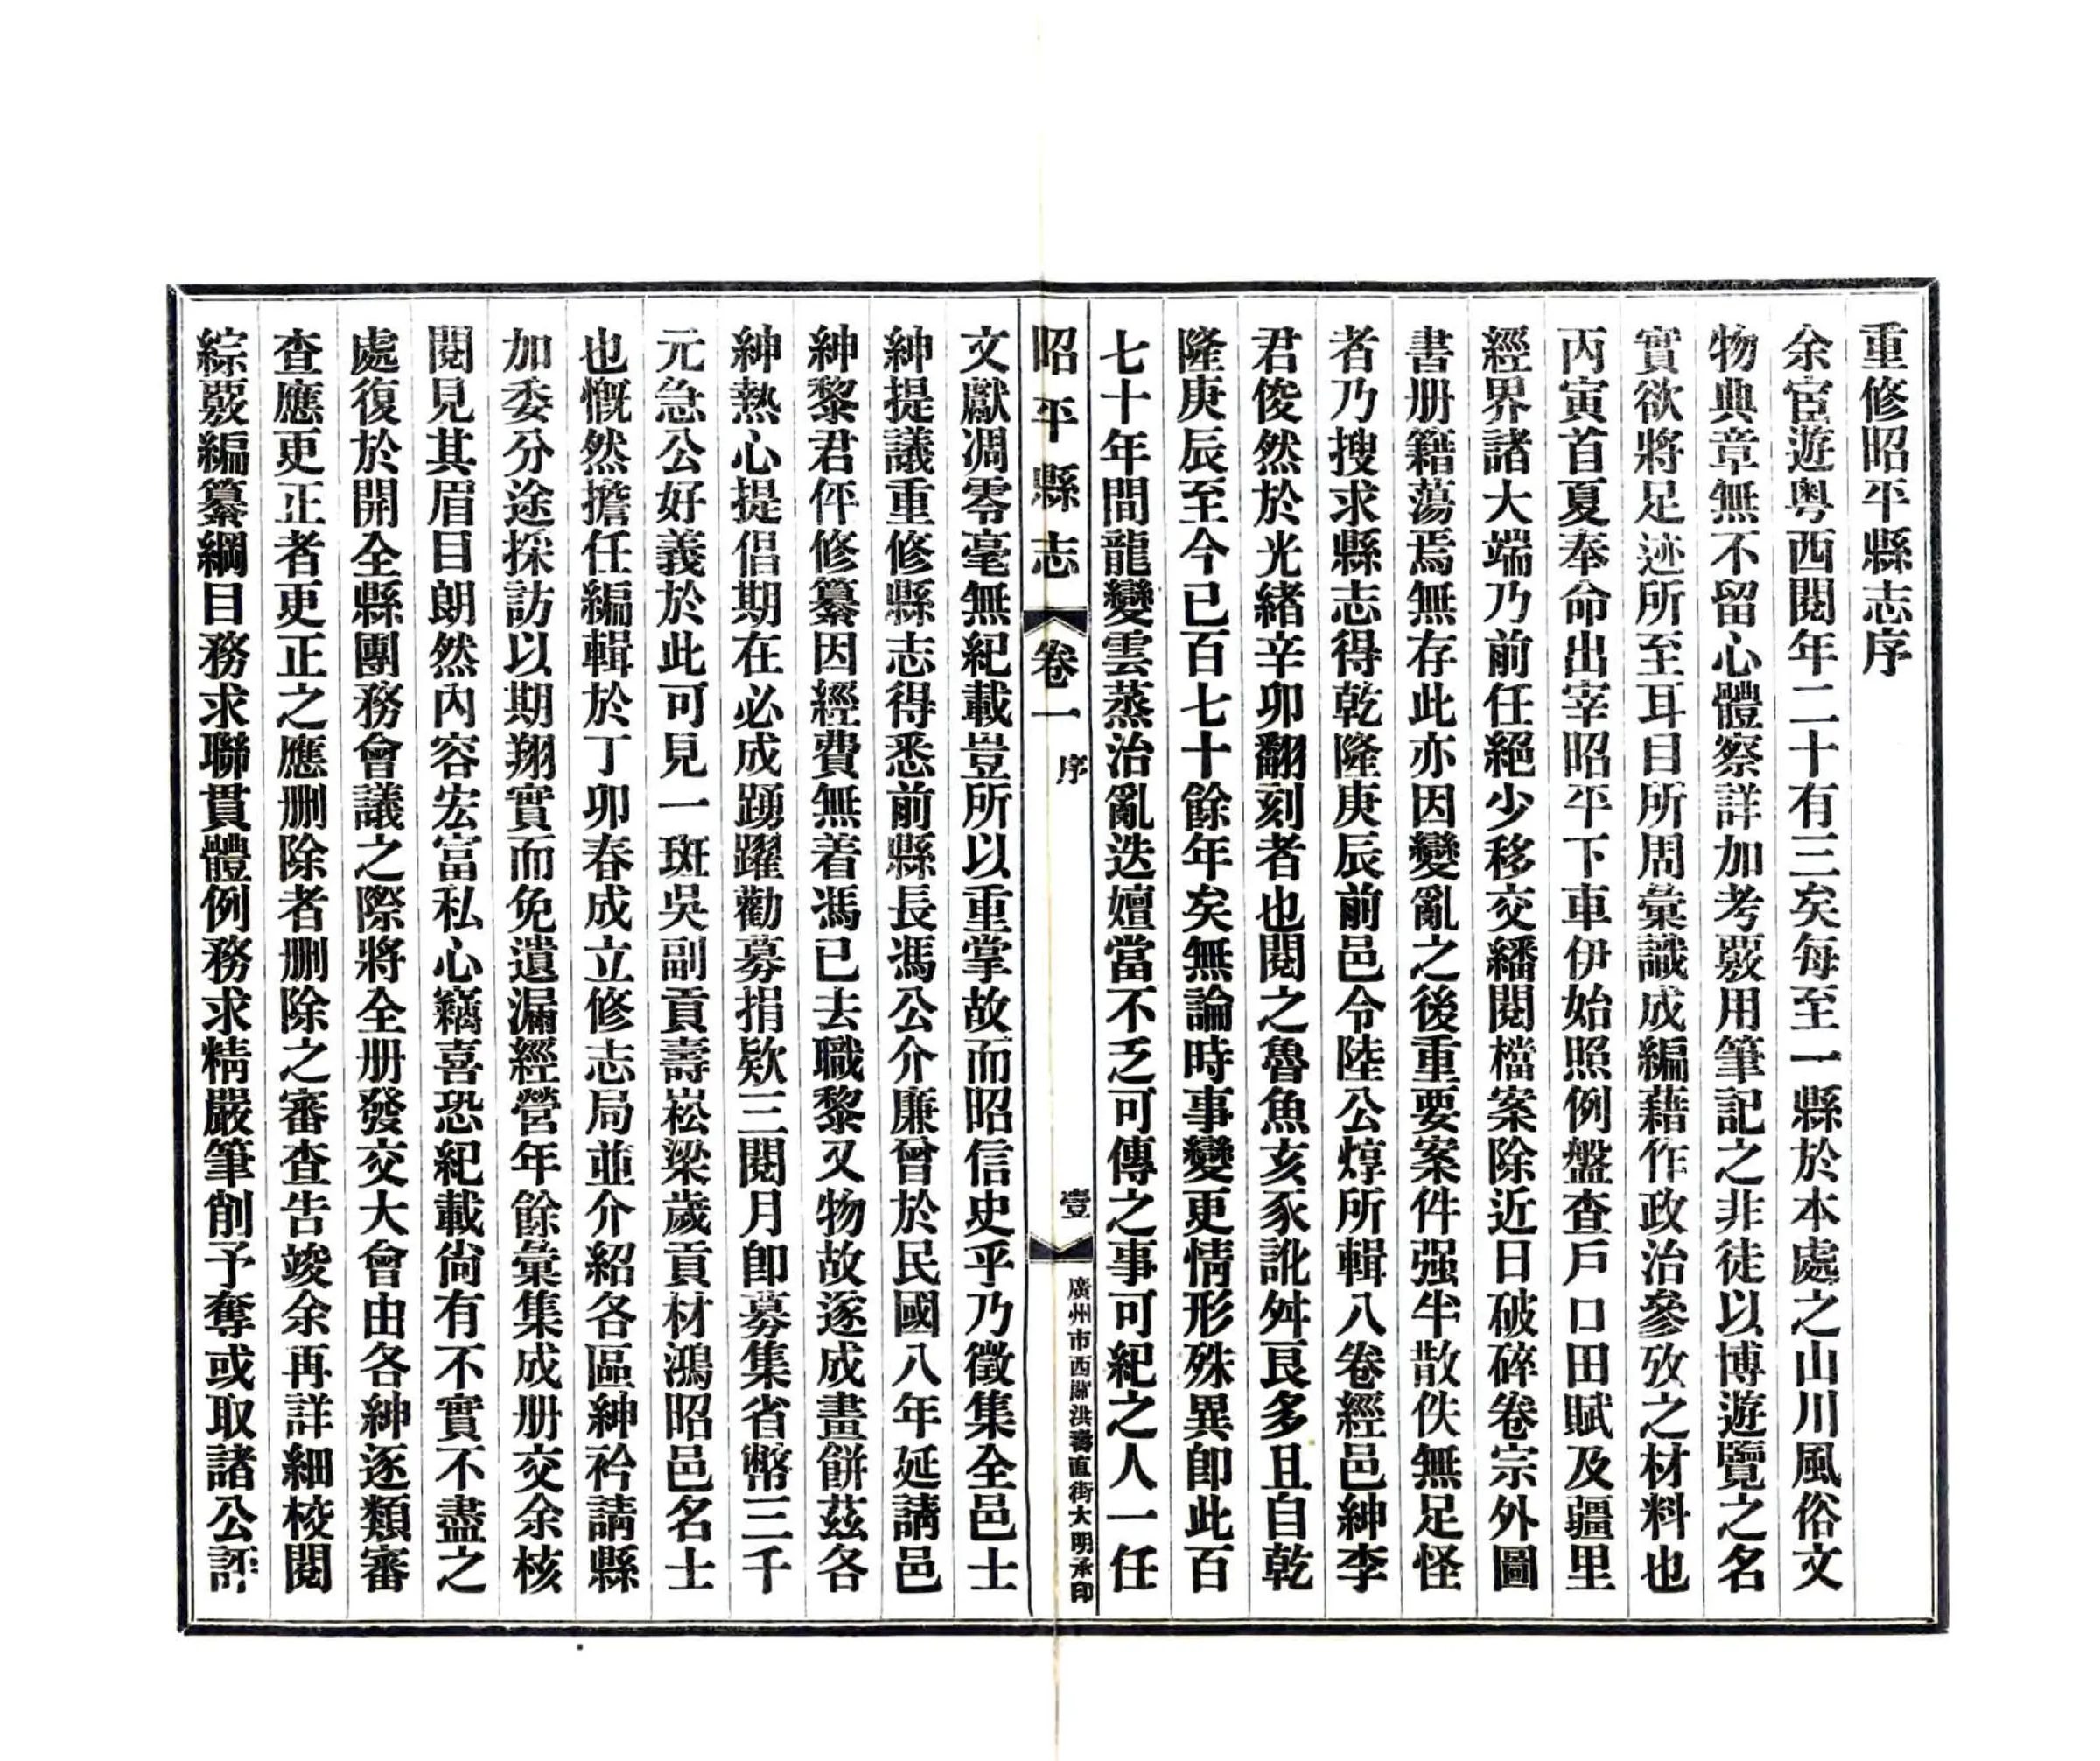 重修昭平縣志序
余宦遊粤西閱年二十有三矣每至一縣於本處之山川風俗文
物典章無不留心體察詳加考覈用筆記之非徒以博遊覽之名
實欲將足迹所至耳目所周彙識成編藉作政治參攷之材料也
丙寅首夏奉命出宰昭平下車伊始照例盤查戶口田賦及疆里
經界諸大端乃前任絕少移交繙閱檔案除近日破碎卷宗外圖
書册籍蕩焉無存此亦因變亂之後重要案件强半散佚無足怪
者乃搜求縣志得乾隆庚辰前邑令陸公焞所輯八卷經邑紳李
君俊然於光緒辛卯翻刻者也閱之魯魚亥豕訛舛良多且自乾
隆庚辰至今已百七十餘年矣無論時事變更情形殊異即此百
七十年間龍變雲蒸治亂迭嬗當不乏可傳之事可紀之人一任
昭平縣志 卷一 序 壹 廣州市西湖洪壽直街大明承印
文獻凋零毫無紀載豈所以重掌故而昭信史乎乃徵集全邑士
紳提議重修縣志得悉前縣長馮公介廉曾於民國八年延請邑
紳黎君伻修纂因經費無着馮已去職黎又物故遂成畫餅茲各
紳熱心提倡期在必成踴躍勸募捐欵三閱月即募集省幣三千
元急公好義於此可見一斑吳副貢壽崧梁歲貢材鴻昭邑名士
也慨然擔任編輯於丁卯春成立修志局並介紹各區紳衿請縣
加委分途採訪以期翔實而免遺漏經營年餘彙集成册交余核
閱見其眉目朗然內容宏富私心竊喜恐紀載尙有不實不盡之
處復於開全縣團務會議之際將全册發交大會由各紳逐類審
查應更正者更正之應删除者删除之審查告竣余再詳細校閱
綜覈編纂綱目務求聯貫體例務求精嚴筆削予奪或取諸公評